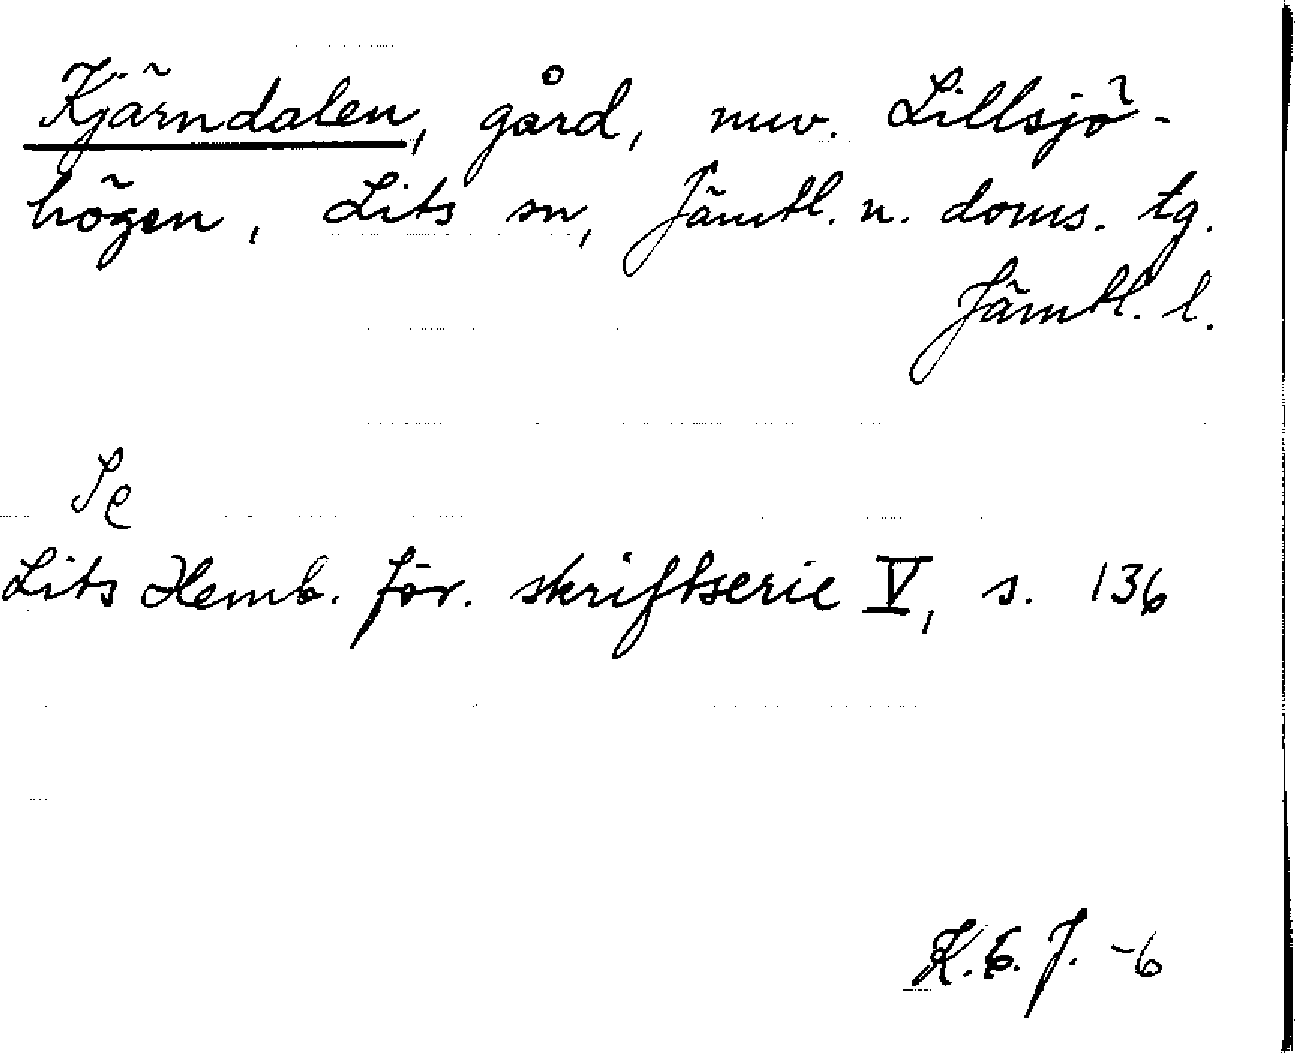 Kjärndalen, gård, nuv. Lillsjö-
högen, Lits sn, Jämtl. n. doms. tg.
Jämtl. l.
Se
Lits Hemb. för. skriftserie V, s. 136
K.G.J. -6